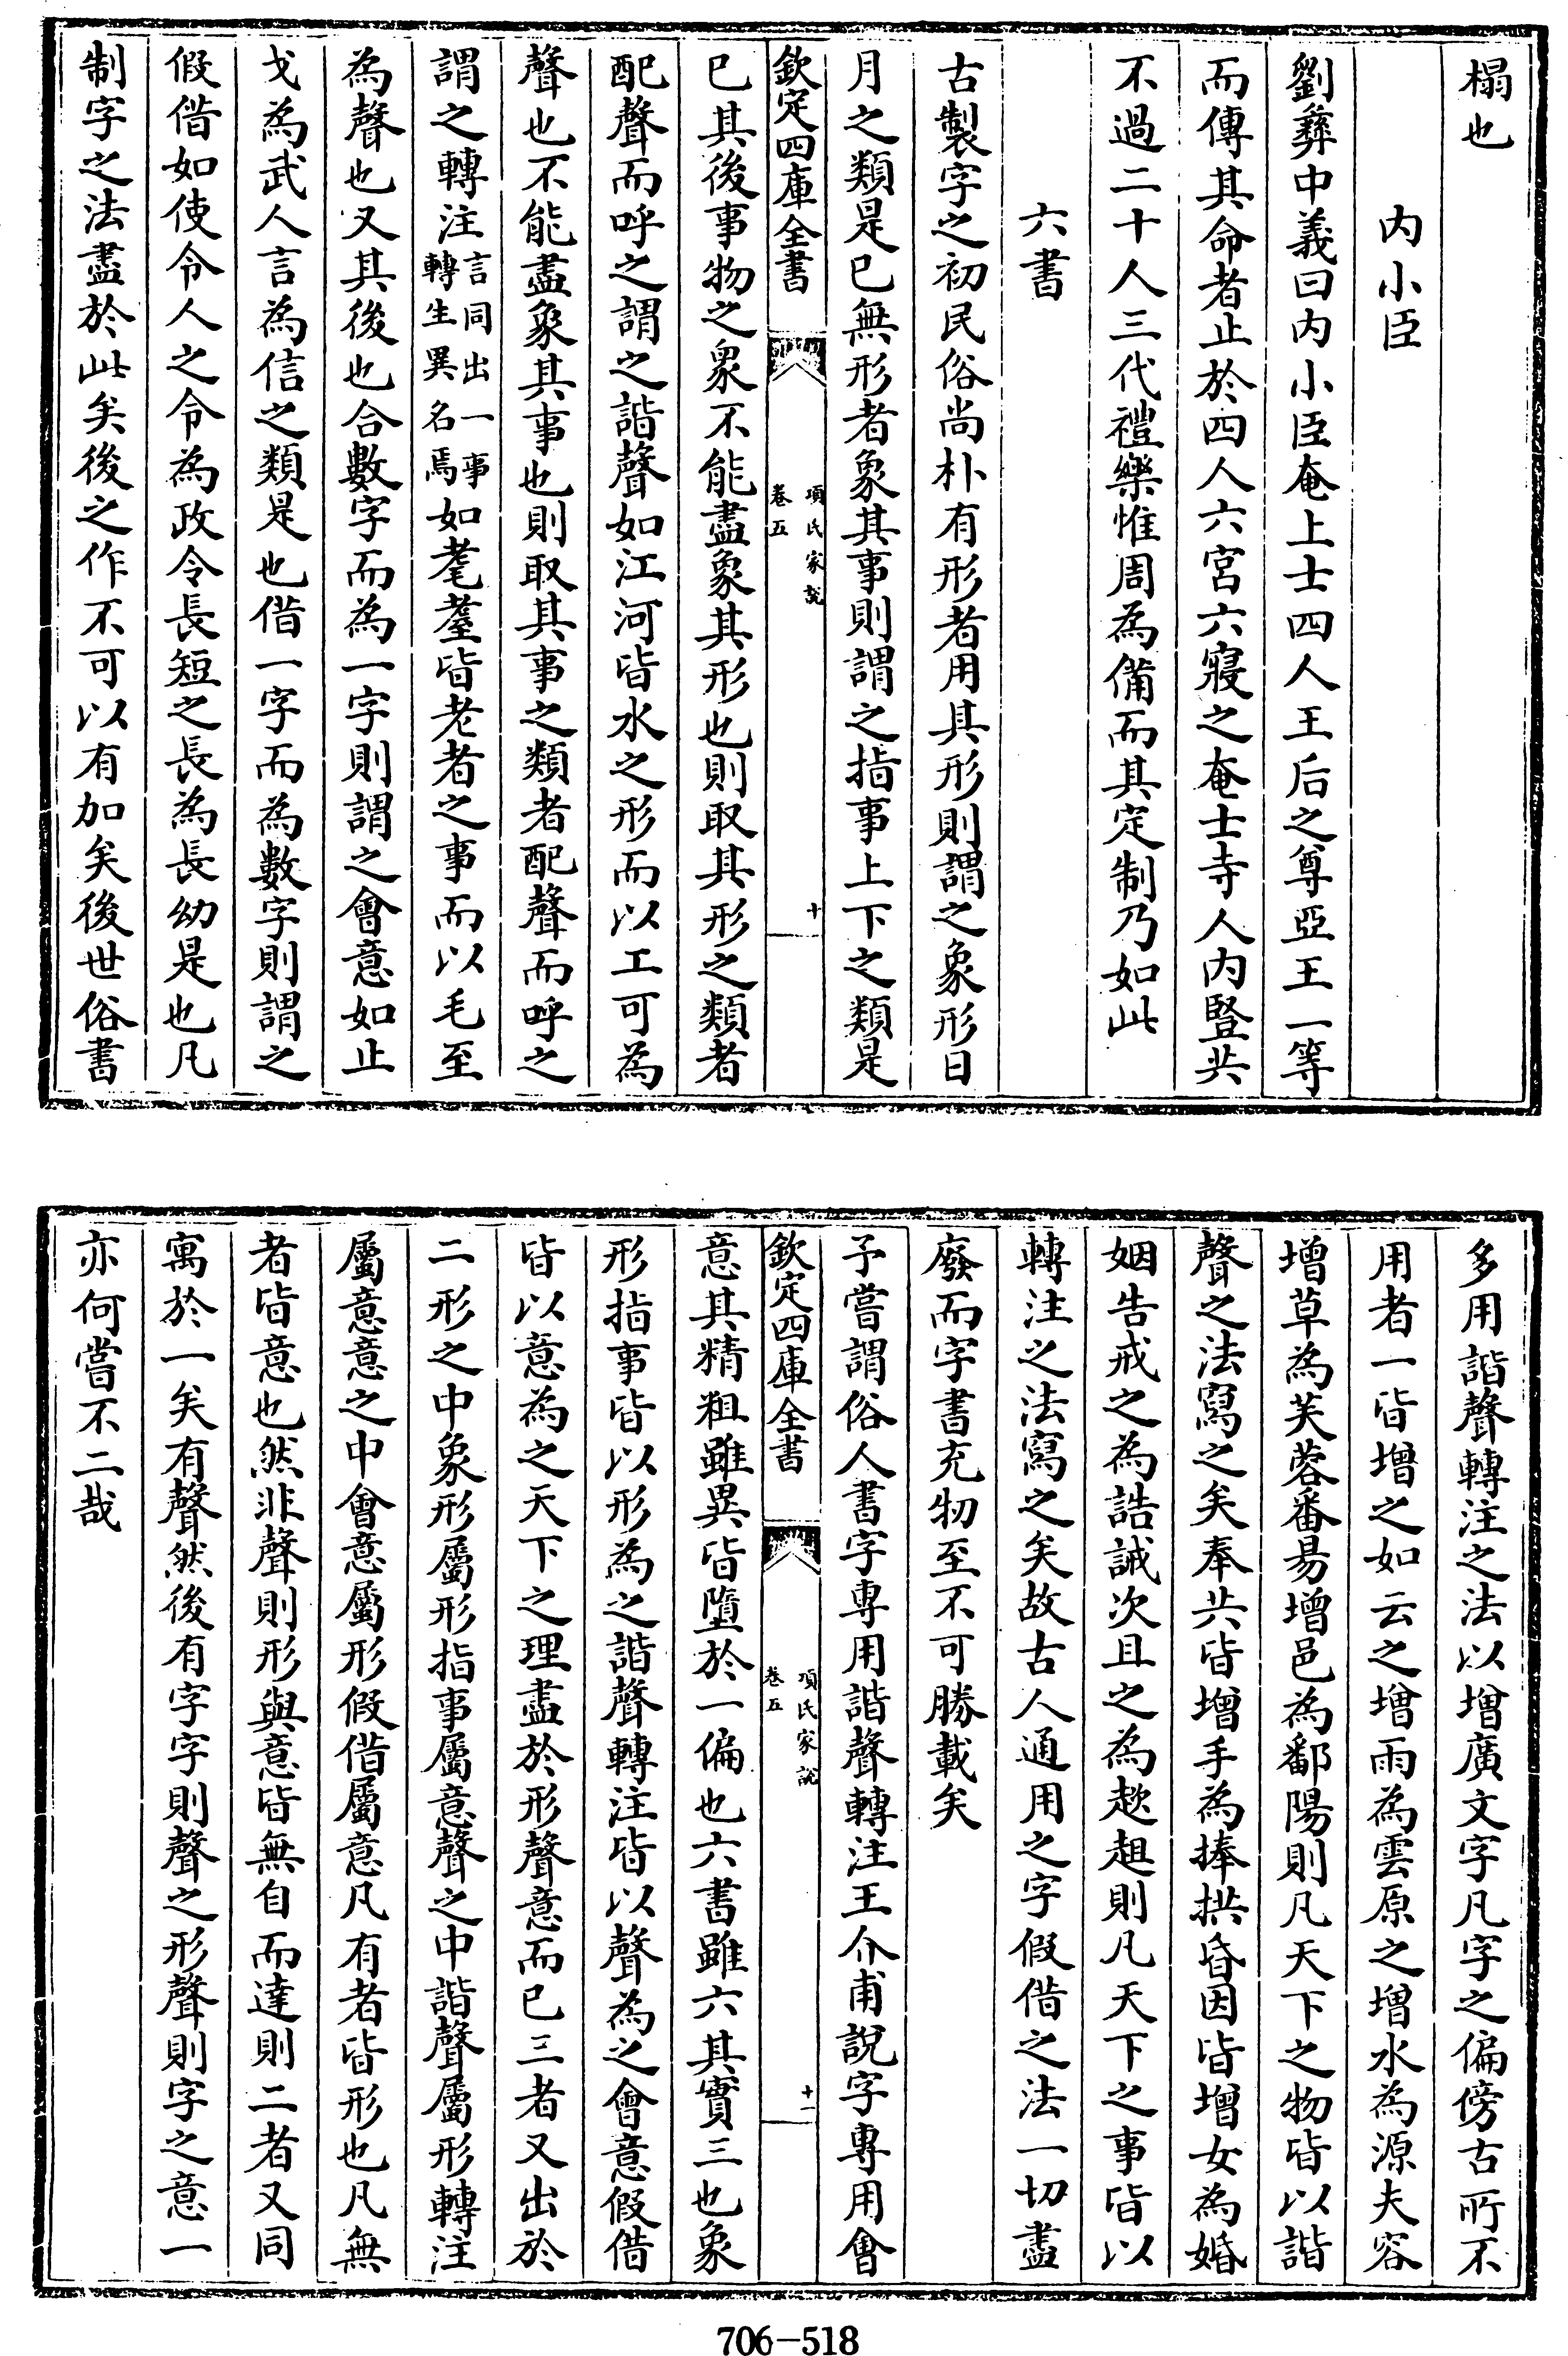 榻也
内小臣
劉彞中義曰内小臣奄上士四人王后之尊亞王一等
而傳其命者止於四人六宫六寢之奄士寺人内豎共
不過二十人三代禮樂惟周為備而其定制乃如此
六書
古製字之初民俗尚朴有形者用其形則謂之象形日
月之類是已無形者象其事則謂之指事上下之類是
欽定四庫全書
項氏家說
卷五
十
已其後事物之衆不能盡象其形也則取其形之類者
配聲而呼之謂之諧聲如江河皆水之形而以工可為
聲也不能盡象其事也則取其事之類者配聲而呼之
謂之轉注言同出一事轉生異名焉如耄耋皆老者之事而以毛至
為聲也又其後也合數字而為一字則謂之會意如止
戈為武人言為信之類是也借一字而為數字則謂之
假借如使令人之令為政令長短之長為長幼是也凡
制字之法盡於此矣後之作不可以有加矣後世俗書
多用諧聲轉注之法以增廣文字凡字之偏傍古所不
用者一皆增之如云之增雨為雲原之增水為源夫容
增草為芙蓉番昜增邑為鄱陽則凡天下之物皆以諧
聲之法寫之矣奉共皆增手為捧拱昏因皆增女為婚
姻告戒之為誥誡次且之為趑趄則凡天下之事皆以
轉注之法寫之矣故古人通用之字假借之法一切盡
廢而字書充牣至不可勝載矣
予嘗謂俗人書字專用諧聲轉注王介甫說字專用會
欽定四庫全書
項氏家說
卷五
十一
意其精粗雖異皆墮於一偏也六書雖六其實三也象
形指事皆以形為之諧聲轉注皆以聲為之會意假借
皆以意為之天下之理盡於形聲意而已三者又出於
二形之中象形屬形指事屬意聲之中諧聲屬形轉注
屬意意之中會意屬形假借屬意凡有者皆形也凡無
者皆意也然非聲則形與意皆無自而達則二者又同
寓於一矣有聲然後有字字則聲之形聲則字之意一
亦何嘗不二哉
706-518